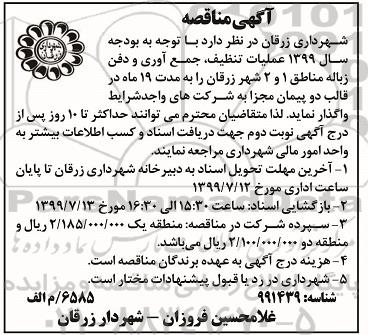 آگهی مناقصه
شهرداری زرقان در نظر دارد با توجه به بودجه
سال ۱۳۹۹ عملیات تنظیف، جمع آوری و دفن
زباله مناطق ۱ و ۲ شهر زرقان را به مدت ۱۹ ماه در
قالب دو پیمان مجزا به شرکت های واجدشرایط
واگذار نماید. لذا متقاضیان محترم می توانند حداکثر تا ۱۰ روز پس از
درج آگهی نوبت دوم جهت دریافت اسناد و کسب اطلاعات بیشتر به
واحد امور مالی شهرداری مراجعه نمایند.
۱- آخرین مهلت تحویل اسناد به دبیرخانه شهرداری زرقان تا پایان
ساعت اداری مورخ ۱۳۹۹/۷/۱۲
۲- بازگشایی اسناد: ساعت ۱۵:۳۰ الی ۱۶:۳۰ مورخ ۱۳۹۹/۷/۱۳
۳- سپرده شرکت در مناقصه: منطقه یک ۲/۱۸۵/۰۰۰/۰۰۰ ریال و
منطقه دو ۲/۱۰۰/۰۰۰/۰۰۰ ریال می‌باشد.
۴- هزینه درج آگهی به عهده برندگان مناقصه است.
۵- شهرداری در رد یا قبول پیشنهادات مختار است.
شناسه: ۹۹۱۴۳۹ ۶۵۸۵/م الف
غلامحسین فروزان – شهردار زرقان